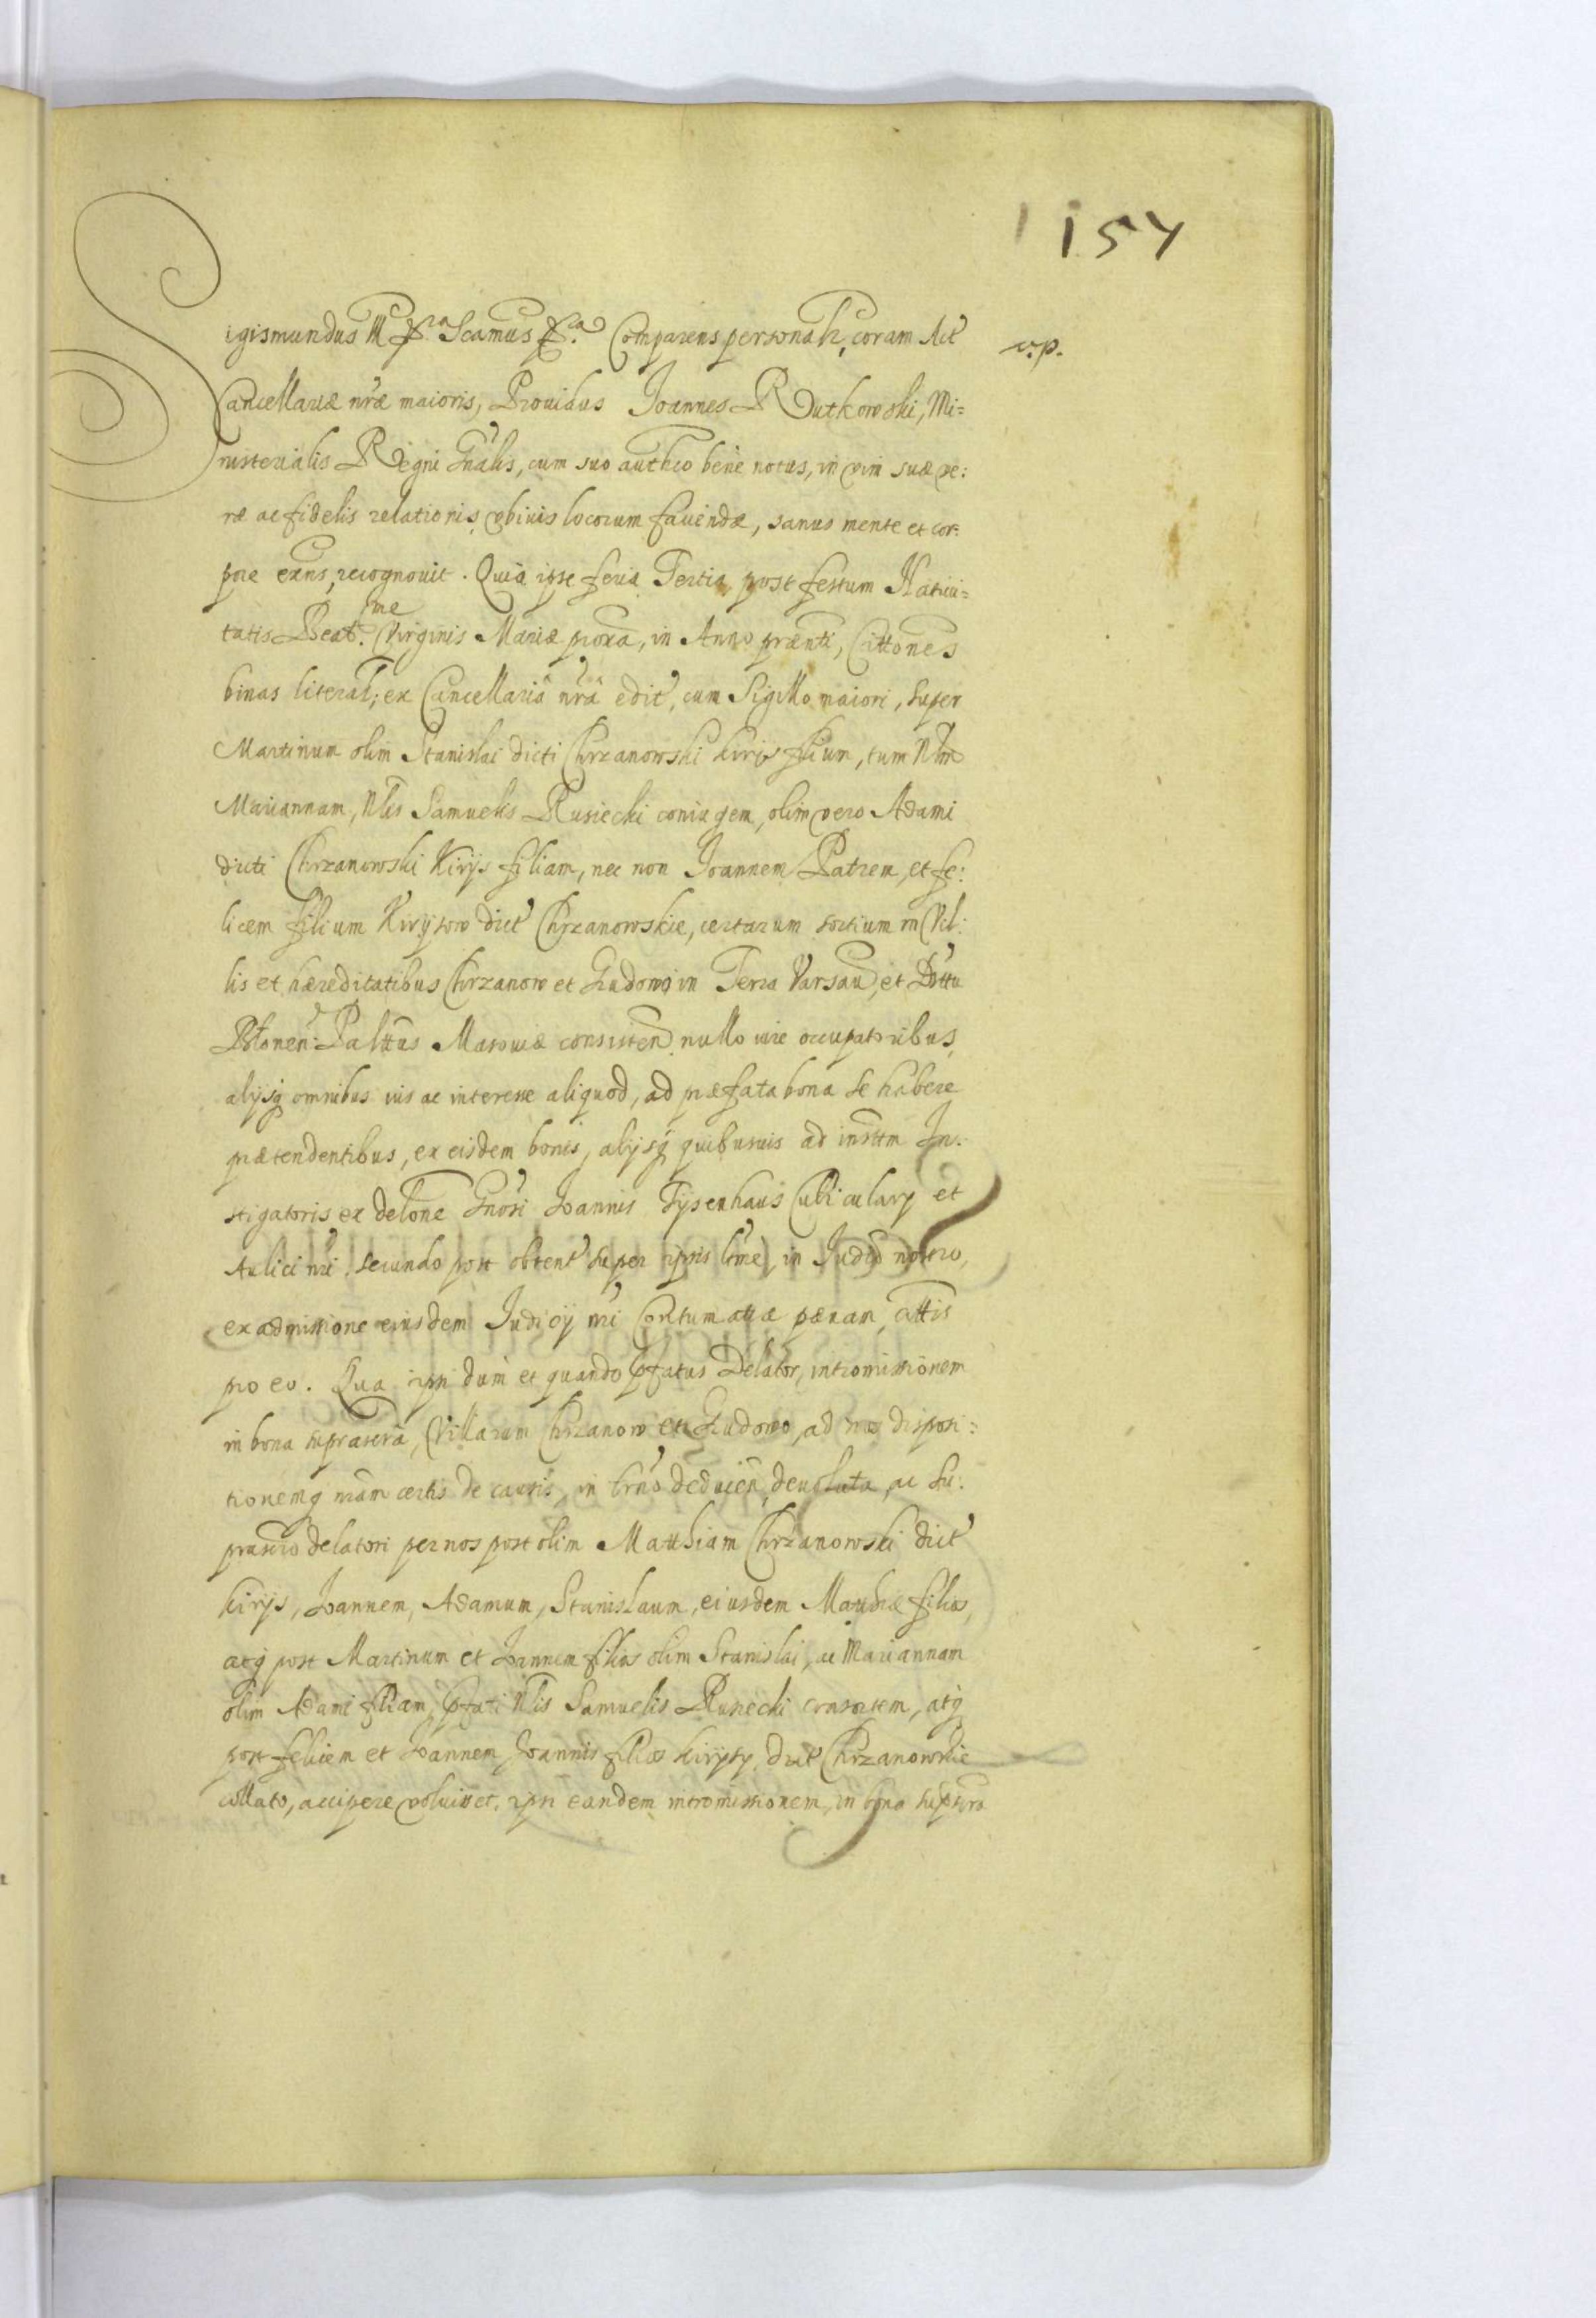 1157
Sigismundus III &ra Scamus &a. Comparens personalr, coram Act
v.p.
Cancellariæ nræ maioris, Prouidus Joannes Rutkowski, Mi=
nisterialis Regni Gnalis, cum suo authco bene notus, in vim suæ ve:
ræ ac fidelis relationis vbiuis locorum faciendæ, sanus mente et cor:
pore exns, recognouit. Quia ipse feria Tertia post festum Natiui=
tatis Beat.me Virginis Mariæ proxa, in Anno prænti, Cittones
binas literal; ex Cancellaria nra edit, cum Sigillo maiori, super
Martinum olim Stanislai dicti Chrzanowski kirys filium, tum Nlm
Mariannam, Nlis Samuelis Rusiecki coniugem, olim vero Adami
dicti Chrzanowski Kirys filiam, nec non Joannem Patrem, et fe:
licem filium Kirysow dict Chrzanowskie, certarum sortium in Vil:
lis et hæreditatibus Chrzanow et Gudowo in Terra Varsau, et Dsttu
Blonen: Palttus Masouiæ consisten nullo iure occupatoribus,
alijsq omnibus ius ac interesse aliquod, ad præfata bona se habere
prætendentibus, ex eisdem bonis, alijsq quibusuis ad insttm In:
stigatoris ex delone Gnosi Joannis Tysenhaus Cubiculary et
Aulici nri, secundo post obtent super ipsis in Judio nostro,
ex admissione eiusdem Judicij nri Contumatiæ pænam, attis
pro eo. Qua ipsi dum et quando pfatus Delator, intromissionem
in bona suprascra, Villarum Chrzanow et Gudowo, ad nos disposi:
tionemq nram certis de causis, in trno deducen, deuoluta, ac su:
prascro delatori per nos post olim Matthiam Chrzanowski dict
kirys, Joannem, Adamum, Stanislaum, eiusdem Mathiæ filios,
atq post Martinum et Joannem filios olim Stanislai, ac Mariannam
olim Adami filiam, pfati Nlis Samuelis Rusiecki consortem, atq
post felicem et Joannem Joannis filios kirysy dict Chrzanowskie
collato, accipere voluisset, ipsi eandem intromissionem, in bona supscra